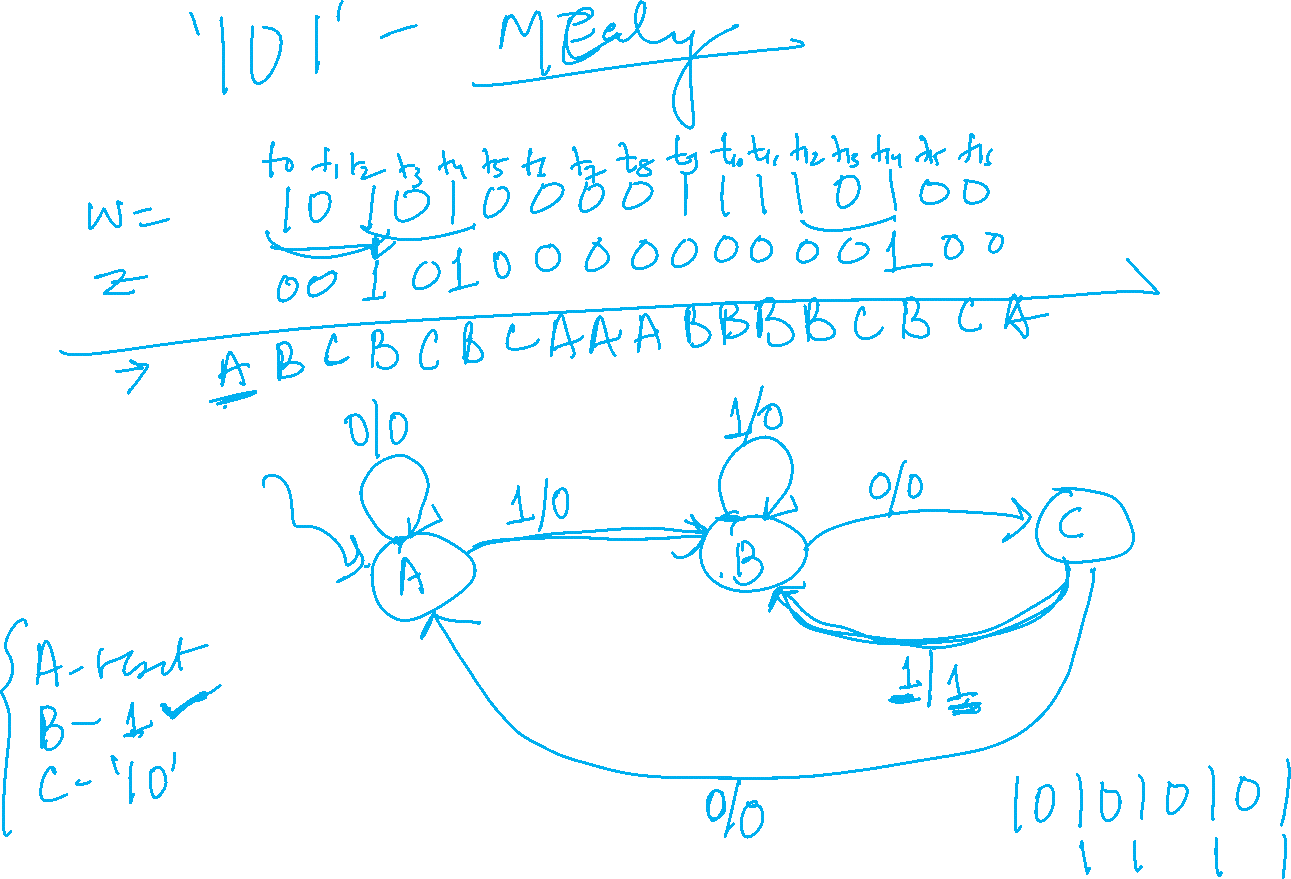 '101' - MEaly
t0 t1 t2 t3 t4 t5 t6 t7 t8 t9 t10 t11 t12 t13 t14 t15 t16
W= 1 0 1 0 1 0 0 0 0 1 1 1 1 0 1 0 0
Z 0 0 1 0 1 0 0 0 0 0 0 0 0 0 1 0 0
→ A B C B C B C A A A B B B B C B C A
0/0
1/0
1/0
0/0
A
B
C
1/1
0/0
A - reset
B - 1 ✓
C - '10'
1 0 1 0 1 0 1 0 1
1 1 1 1